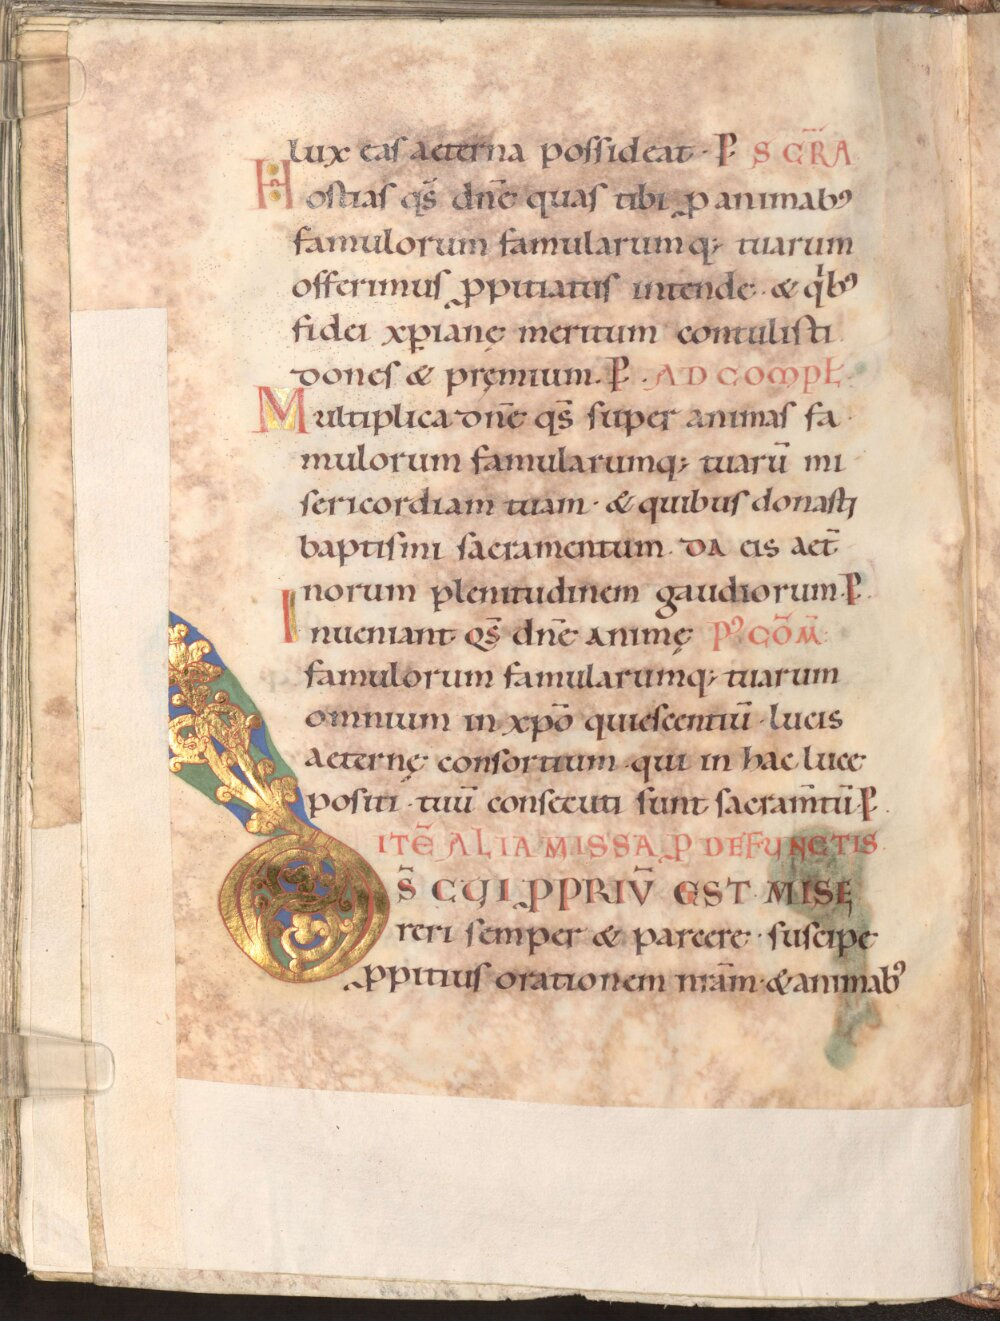 lux eas aeterna possideat · P̲ S̅ GR̅A
Hostias qs̅ dn̅e quas tibi ꝓ animabꝰ
famulorum famularumq; tuarum
offerimus ꝓpitiatus intende · & qͥbꝰ
fidei xp̅ianę meritum contulisti
dones & pręmium. P̲ . AD COMPL̅
Multiplica dn̅e qs̅ super animas fa
mulorum famularumq; tuaru̅ mi
sericordiam tuam · & quibus donasti
baptismi sacramentum · da eis aet̅
norum plenitudinem gaudiorum. P̲
Inueniant qs̅ dn̅e animę Pꝰ CO̅M̅
famulorum famularumq; tuarum
omnium in xp̅o quiescentiu̅ · lucis
aeternę consortium · qui in hac luce
positi · tuu̅ consecuti sunt sacram̅tu̅ · P̲
ITE̅ ALIA MISSA ꝓ DEFUNCTIS
DS̅ CUI ꝓPRIU̅ EST MISE
reri semper & parcere · suscipe
ꝓpitius orationem nr̅am · & animabꝰ